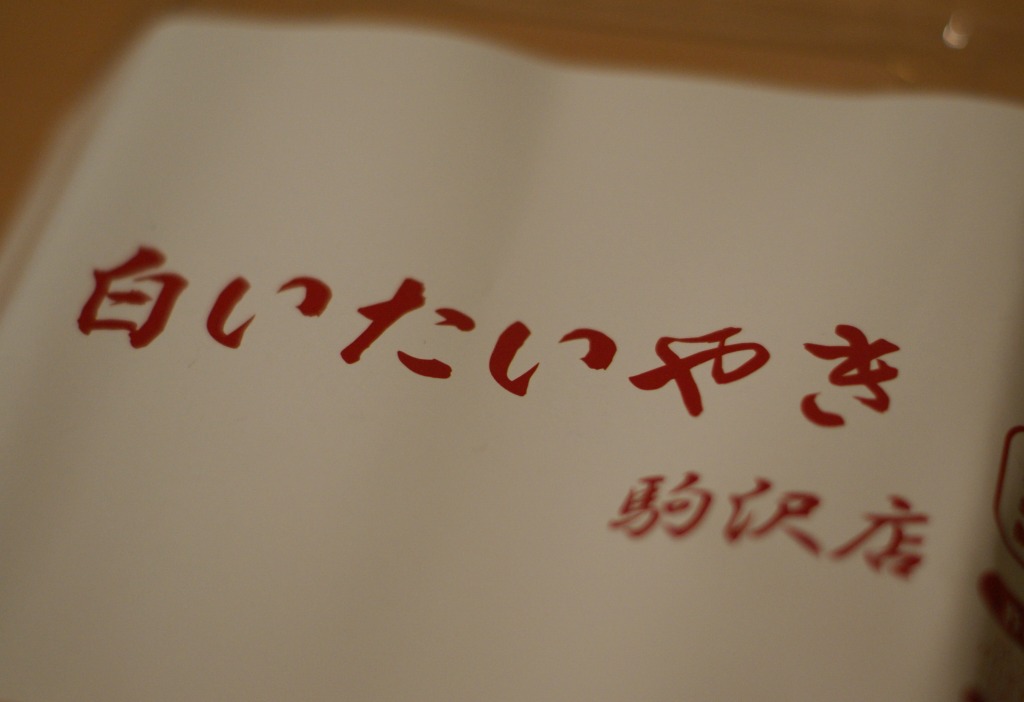 白いたいやき
駒沢店